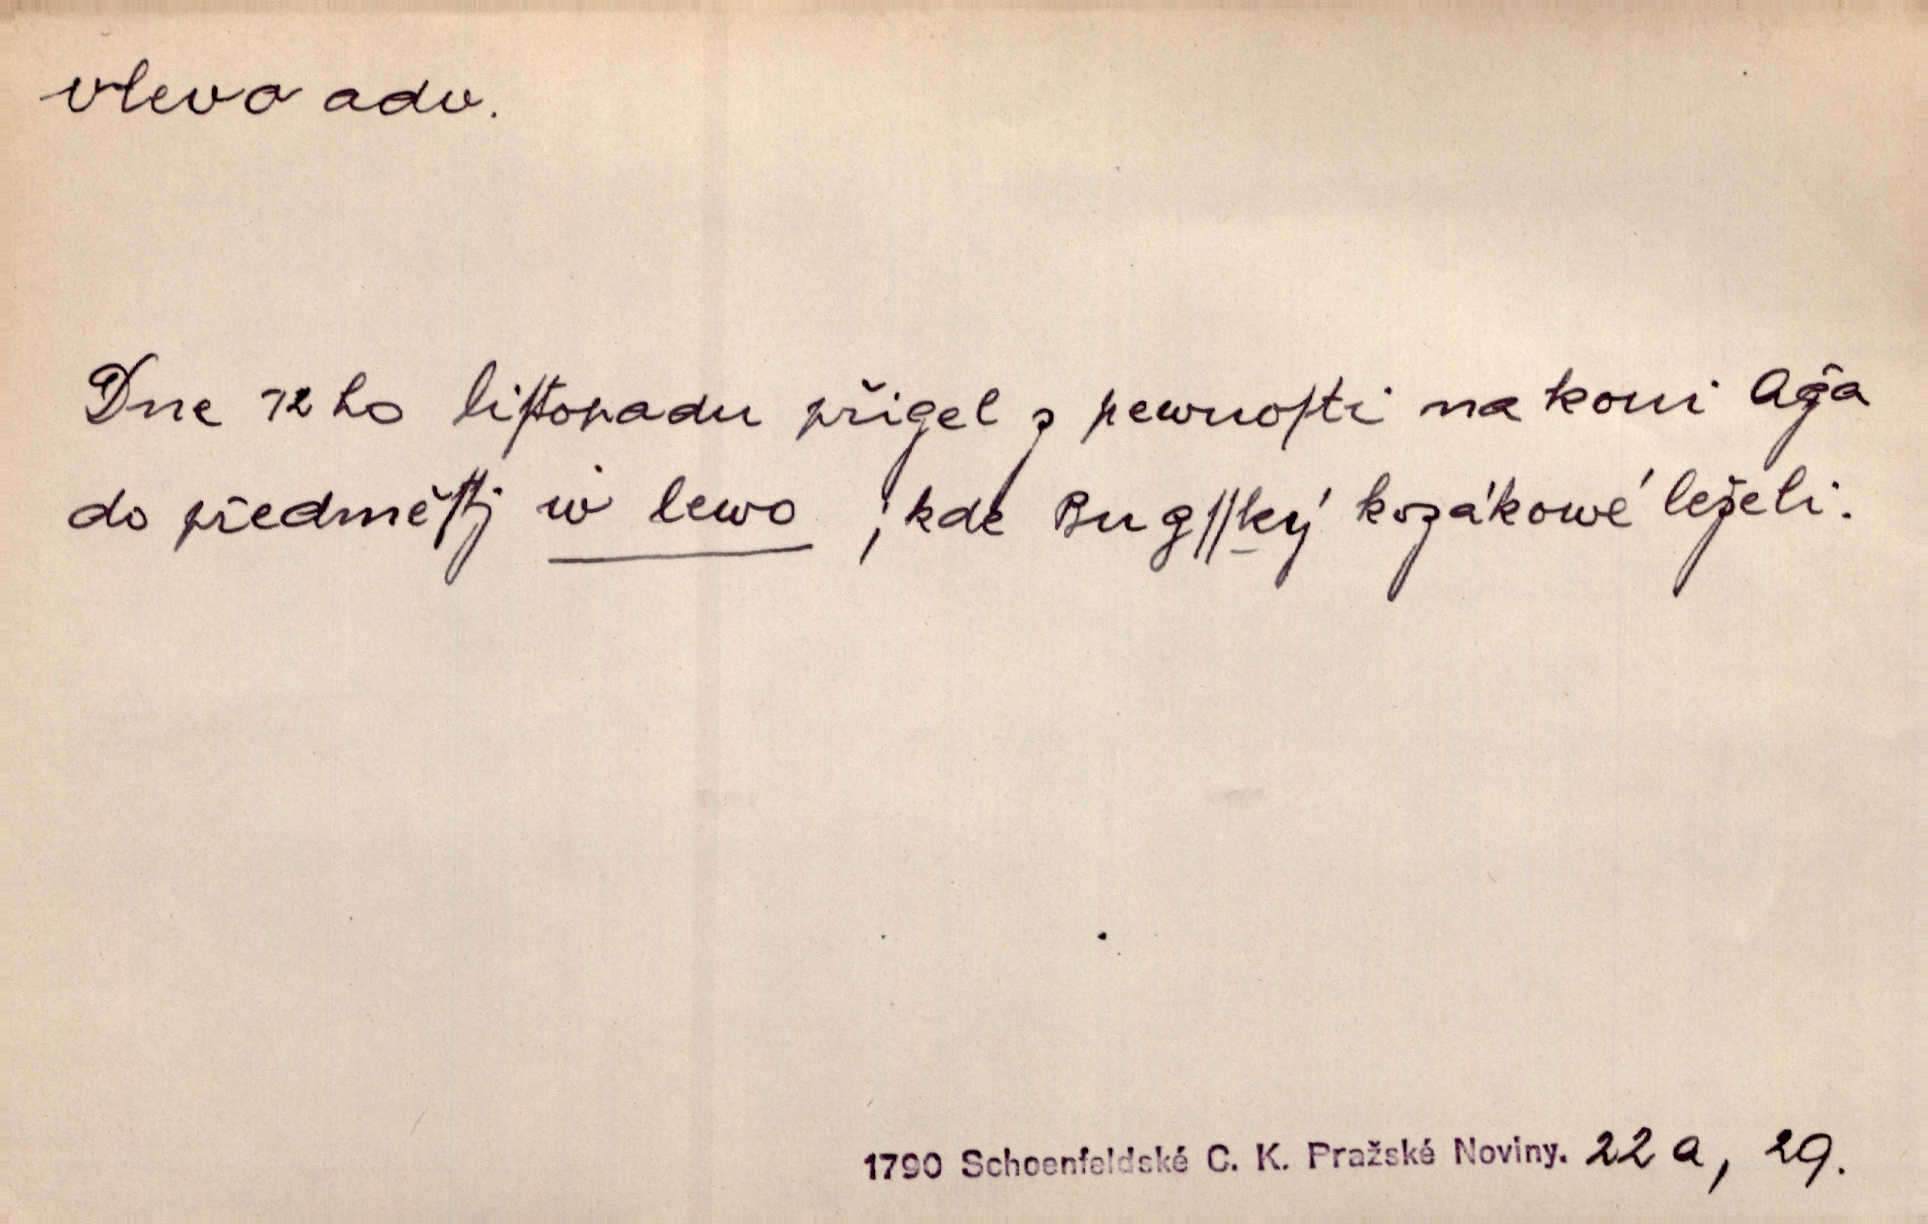 vlevo adv.
Dne 12 ho liſtopadu přigel z pewnoſti na koni Aǧa
do předměſtj w lewo, kde Bugſſký kozákowé leželi.
1790 Schoenfeldské C. K. Pražské Noviny. 22 a, 29.